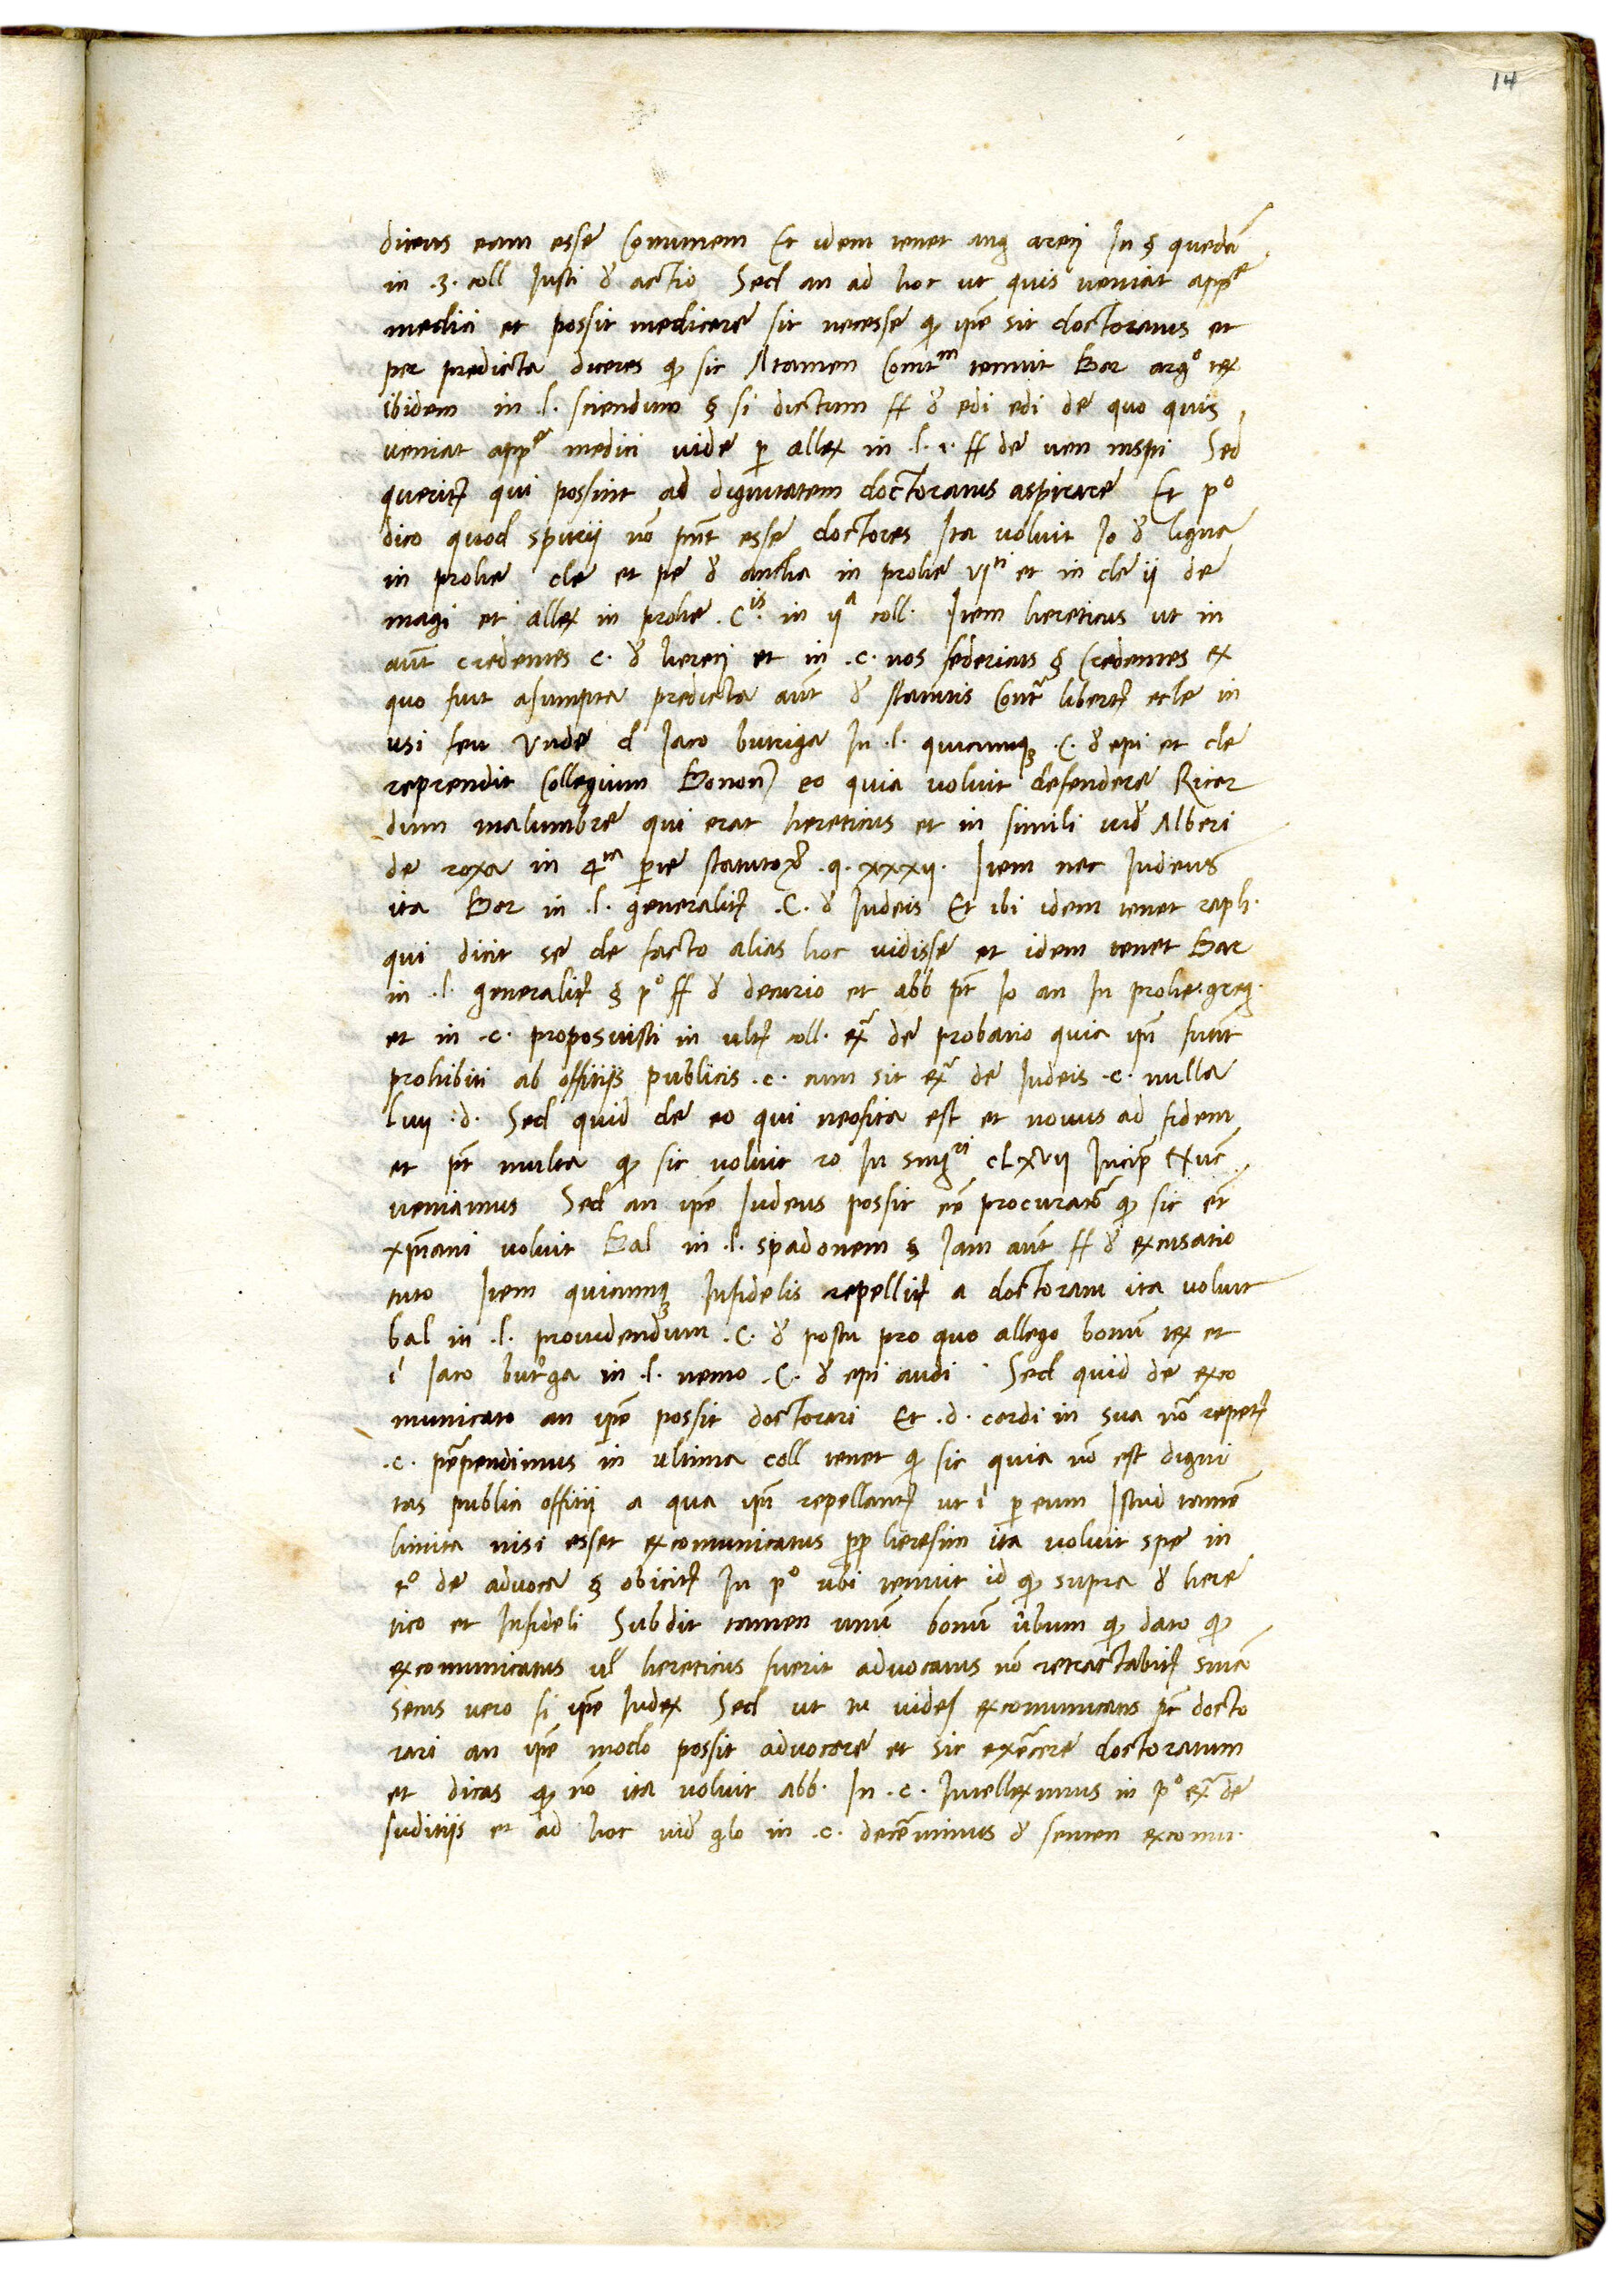 14
dicens eam esse Comunem Et idem tenet ang areti In § quedā
in .3. coll Insti ꝺ actio Sed an ad hoc ut quis veniat appe
medici et possit medicare sit necesse ꝙ ipē sit doctoratus et
per predicta diceres ꝙ sic Attamen Contm tenuit Bar argo tex
ibidem in .l. sciendum § si dictum ff ꝺ edi edi de quo quis
veniat appe medici vide ꝑ allex in .l. 1. ff de ven inspi Sed
querit̃ qui possint ad dignitatem doctoratus aspirare Et po
dico quod spurij nō pn̄t esse doctores Ita voluit Io ꝺ ligna
in prohe cle et pe ꝺ ancha in prohe vjti et in cle ij de
magi et allex in prohe .Cis. in ija coll. Item hereticus ut in
aut̄ credentes c. ꝺ hereti et in .c. nos federicus § Credentes ex
quo fuit asumpta predicta aut̄ ꝺ statutis Cont̃ libert̃ ecle in
usi feu Unde d Iaco butriga In .l. quicumqꝫ .C. ꝺ epi et cle
reprendit Collegium Bonon̄ eo quia voluit defendere Ricar
dum malumbre qui erat hereticus et in simili vid̃ Alberi
de roxa in 4ta ꝑte statutoꝝ .q. xxxij. Item nec Iudeus
ita Bar in .l. generalit̃ .C. ꝺ Iudeis Et ibi idem tenet raph.
qui dicit se de facto alias hoc vidisse et idem tenet Bar
in .l. generalit̃ § po ff ꝺ decurio et abb pt̄ Io an In prohe. greg.
et in .c. proposuisti in ult̃ coll. ex̃ de probatio quia ipīi funt̄
prohibiti ab offitijs publicis .c. cum sit ex̃ de Iudeis .c. nulla
Liiij .d. Sed quid de eo qui neofita est et novus ad fidem
et pt̄ multa ꝙ sic voluit ro In singri cLxvij Incip̄ Nūc
veniamus Sed an ipē Iudeus possit eē procuratō ꝙ sic et̄
xp̄iani voluit Bal in .l. spadonem § Iam aut̄ ff ꝺ excusatio
tuto Item quicumqꝫ Infidelis repellit̃ a doctoratu ita voluit
bal in .l. providendum .C. ꝺ postu pro quo allego bonū tex et
i' Iaco but'ga in .l. nemo .C. ꝺ epi audi Sed quid de exco
municato an ipē possit doctorari Et .d. cardi in sua nō repet̃
.c. ꝑpendimus in ultima coll tenet ꝙ sic quia nō est digni
tas publici offitij a qua ipīi repellant̃ ut i' ꝑ eum Istud tamē
limita nisi esset excomunicatus ꝓp heresim ita voluit spe in
to de advoca § obicit̃ In po ubi tenuit id ꝙ supra ꝺ here
tico et Infideli Subdit tamen unū bonū v̄bum ꝙ dato ꝙ
excomunicatus ul̄ hereticus fuerit advocatus nō retractabit̃ snīa
secus vero si ipē Iudex Sed ut tu vides excomunicatus pt̄ docto
rari an ipē modo possit advocare et sic exercere doctoratum
et dicas ꝙ nō ita voluit abb. In .c. Intelleximus in po ex̃ de
Iuditijs et ad hoc vid̃ glo in .c. decernimus ꝺ senten excomu.